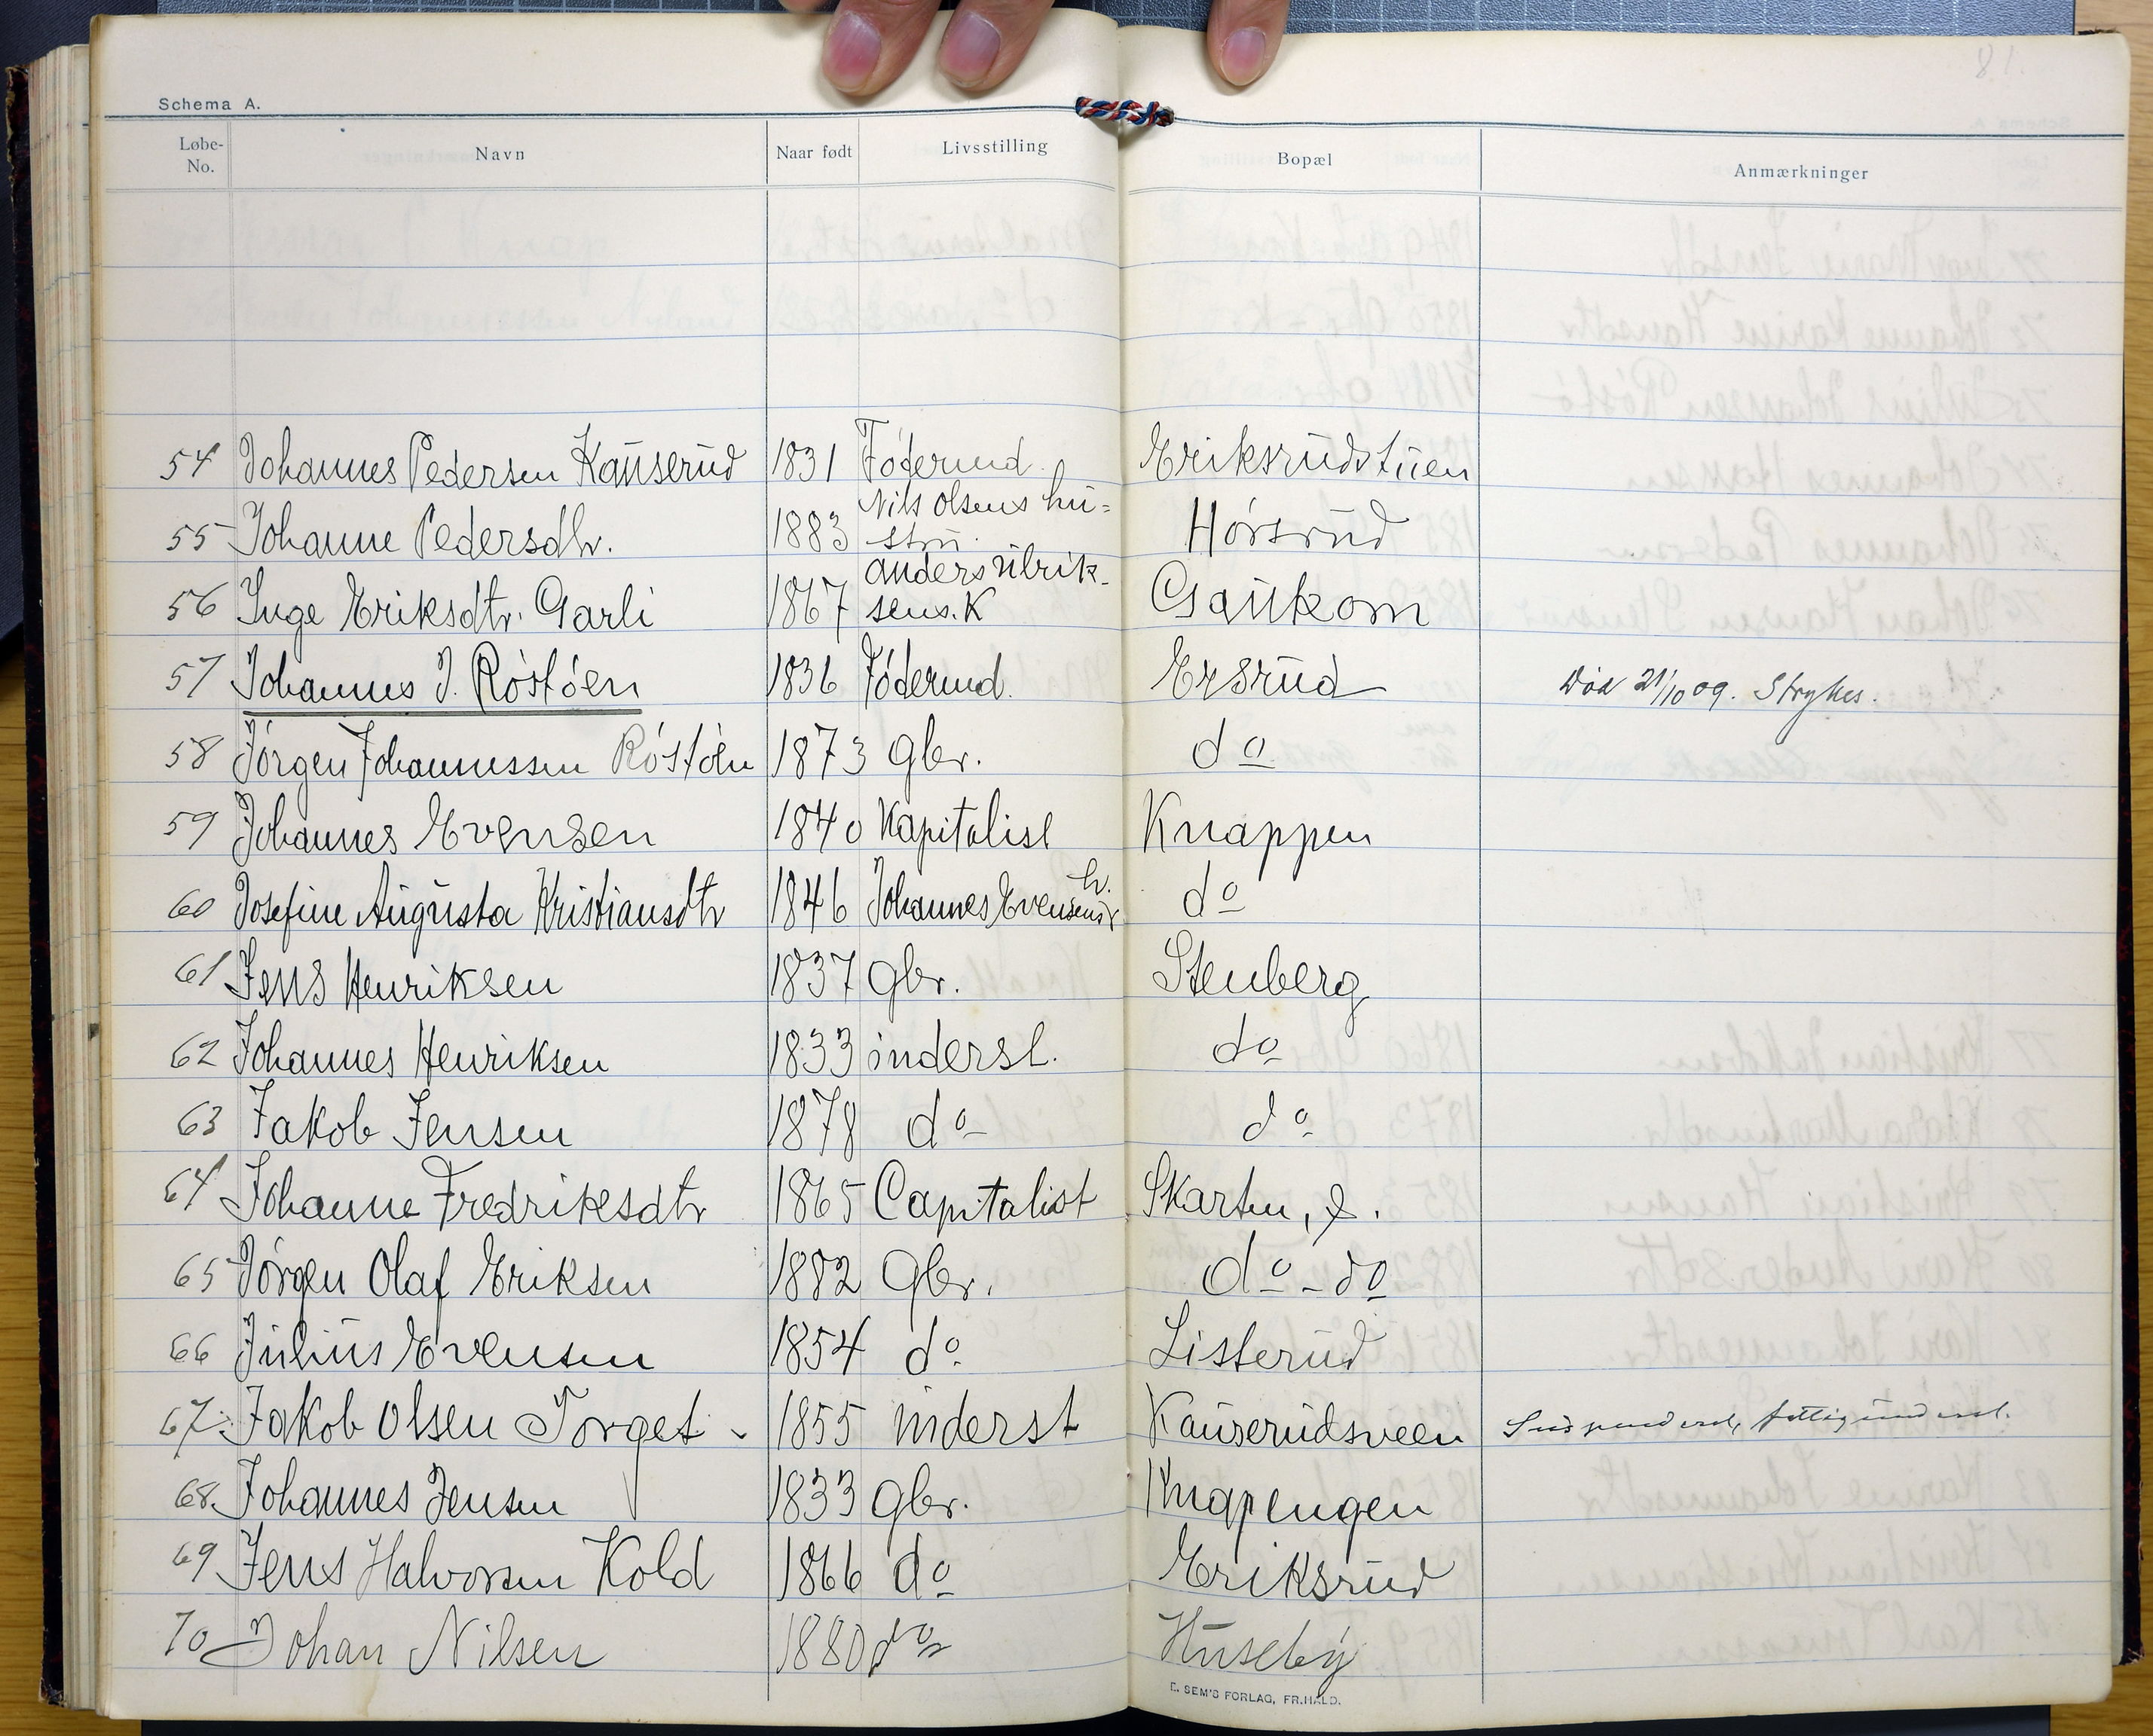 81.
Schema A.
Løbe-No. Navn Naar født Livsstilling Bopæl Anmærkninger
54 Johannes Pedersen Kauserud 1831 Föderund. Eriksrudstuen
55 Johanne Pedersdtr. 1883 Nils Olsens hu=stru. Hörsrud
56 Inge Eriksdtr. Garli 1867 Anders Ulrik-sens. K Gaukom
57 Johannes J. Röstöen 1836 Föderund. Ersrud Död 21/10 09. Strykes.
58 Jörgen Johannessen Röstöen 1873 Gbr. do
59 Johannes Evensen 1840 Kapitalist Knappen
60 Josefine Augusta Kristiansdtr 1846 Johannes Evensens h. do
61 Jens Henriksen 1837 Gbr. Stenberg
62 Johannes Henriksen 1833 inderst. do
63 Jakob Jensen 1878 do do
64 Johanne Fredriksdtr 1865 Capitalist Skarten, ø.
65 Jörgen Olaf Eriksen 1882 Gbr. do - do
66 Julius Evensen 1854 do Listerud
67 Jakob Olsen Torget 1855 inderst Kauserudsveen Suspenderet, fattigunderst.
68. Johannes Jensen 1833 Gbr. Knapengen
69 Jens Halvorsen Kold 1866 do Eriksrud
70 Johan Nilsen 1880 do Huseby
E. SEM'S FORLAG, FR.HALD.